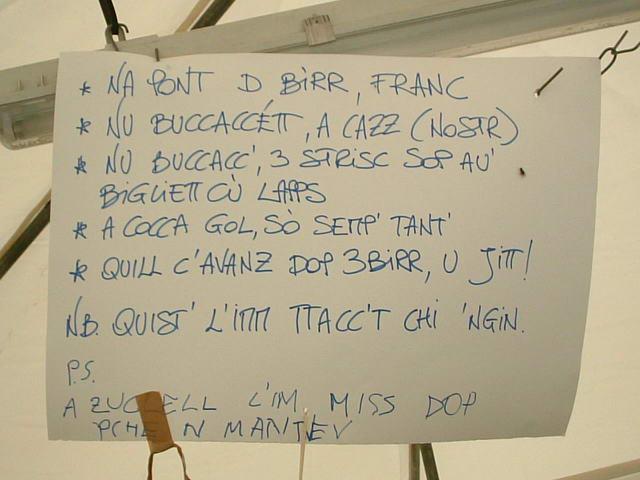 * NA PONT D BIRR, FRANC
* NU BUCCACCÉTT, A CAZZ (NOSTR)
* NU BUCCACC', 3 STRISC SOP AU'
BIGLIETT CÙ LAPPS
* A COCCA GOL, SÒ SEMP' TANT'
* QUILL C'AVANZ DOP 3 BIRR, U JITT!
NB. QUIST' L'IMM TTACC'T CHI 'NGIN.
P.S.
A ZUCCELL L'IM MISS DOP
PCHE N MANTEV